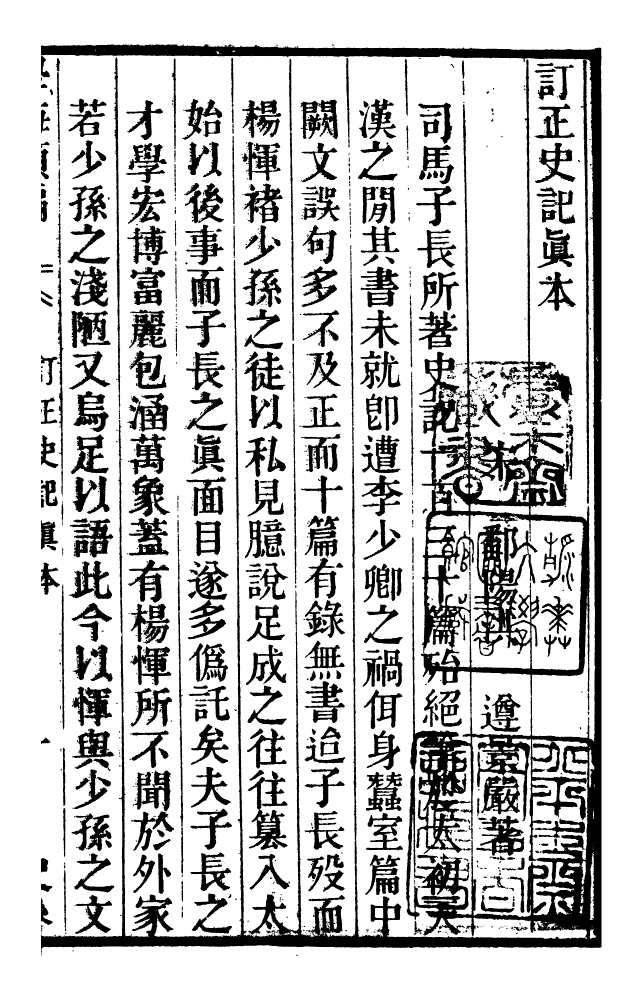 訂正史記眞本
宋 鄱陽洪 遵景嚴著
司馬子長所著史記一百三十篇殆絕筆於太初天
漢之閒其書未就卽遭李少卿之禍佴身蠶室篇中
闕文誤句多不及正而十篇有錄無書迨子長歿而
楊惲褚少孫之徒以私見臆說足成之往往篡入太
始以後事而子長之眞面目遂多僞託矣夫子長之
才學宏博富麗包涵萬象蓋有楊惲所不聞於外家
若少孫之淺陋又烏足以語此今以惲與少孫之文
訂正史記眞本 一